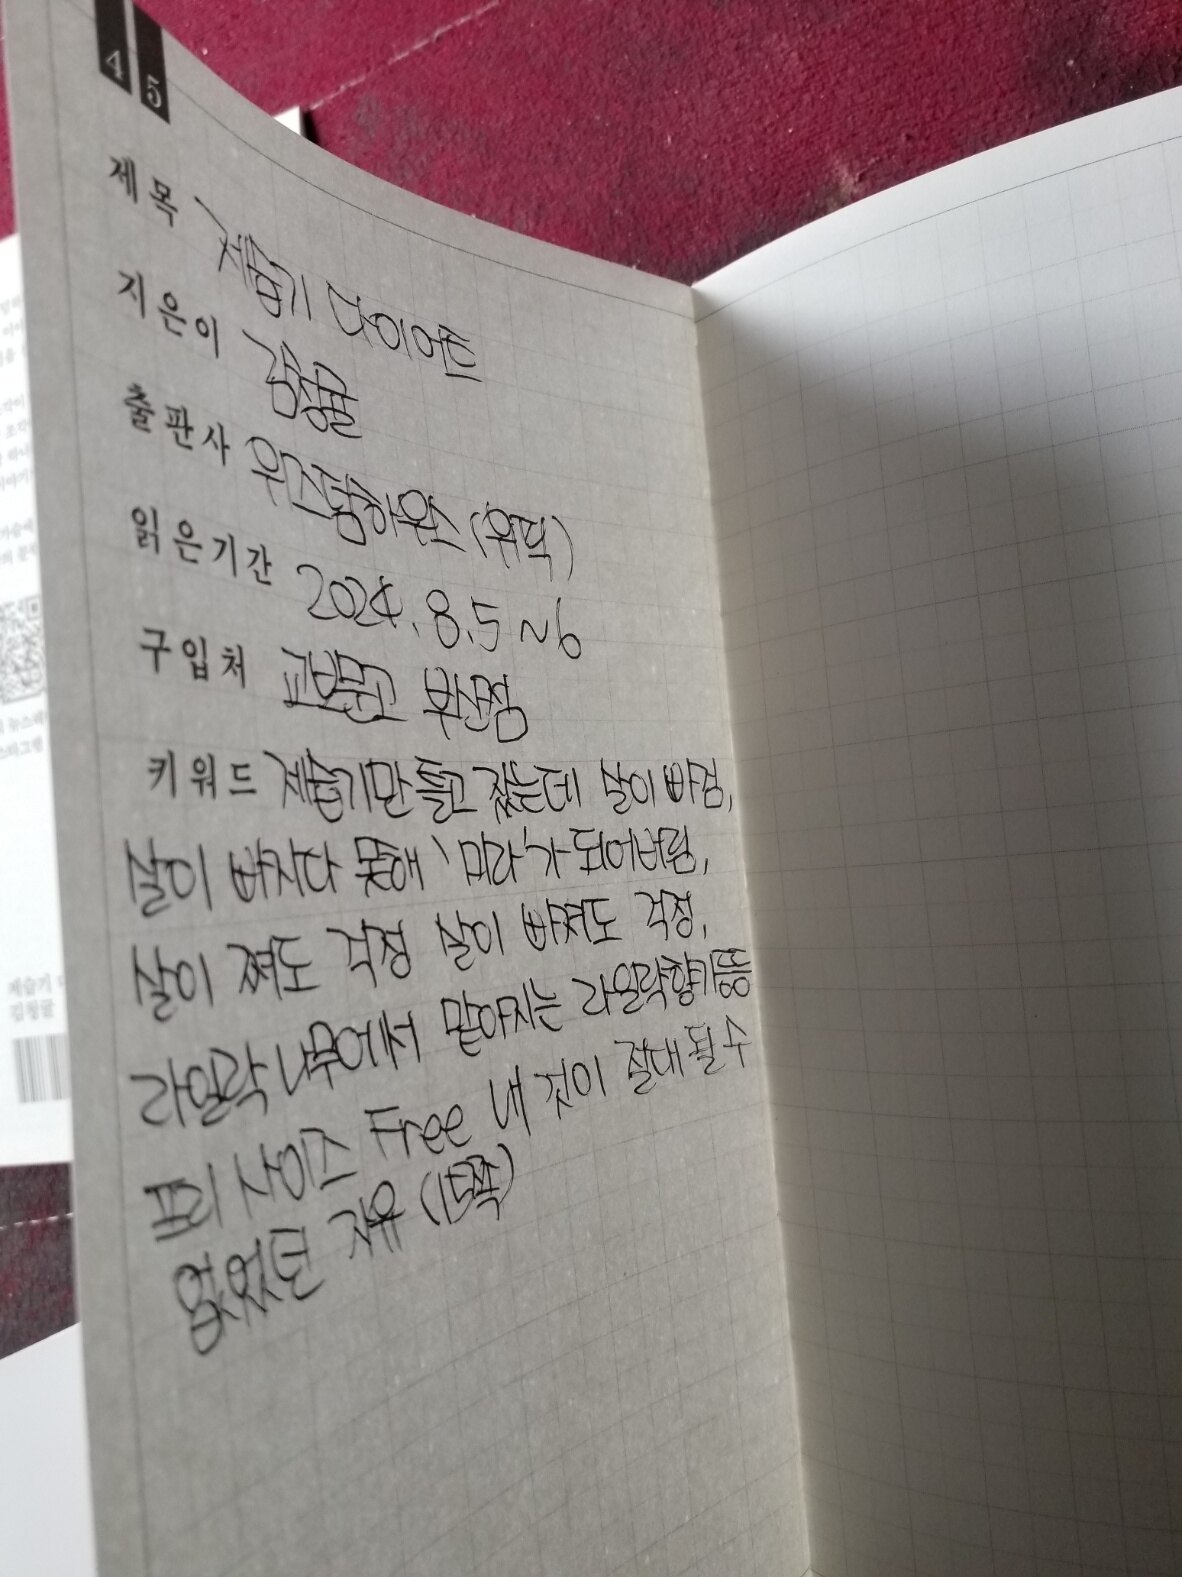 4 5
제목 제습기 다이어트
지은이 김청귤
출판사 위즈덤하우스 (위픽)
읽은기간 2024. 8. 5 ~ 6
구입처 교보문고 부산점
키워드 제습기만 틀고 잤는데 살이 빠짐,
살이 빠지다 못해 '미라'가 되어버림,
살이 쪄도 걱정 살이 빠져도 걱정,
라일락 나무에서 맡아지는 라일락향기 등등
프리 사이즈 Free 내 것이 절대 될 수
없었던 자유 (15쪽)
제습기
김청귤